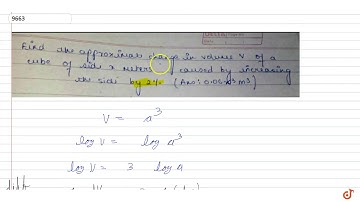 9663
Find the approximate change in volume V of a
cube of side x meters caused by increasing
the side by 2%. (Ans: 0.06x³m³)
V = a³
log V = log a³
log V = 3 log a